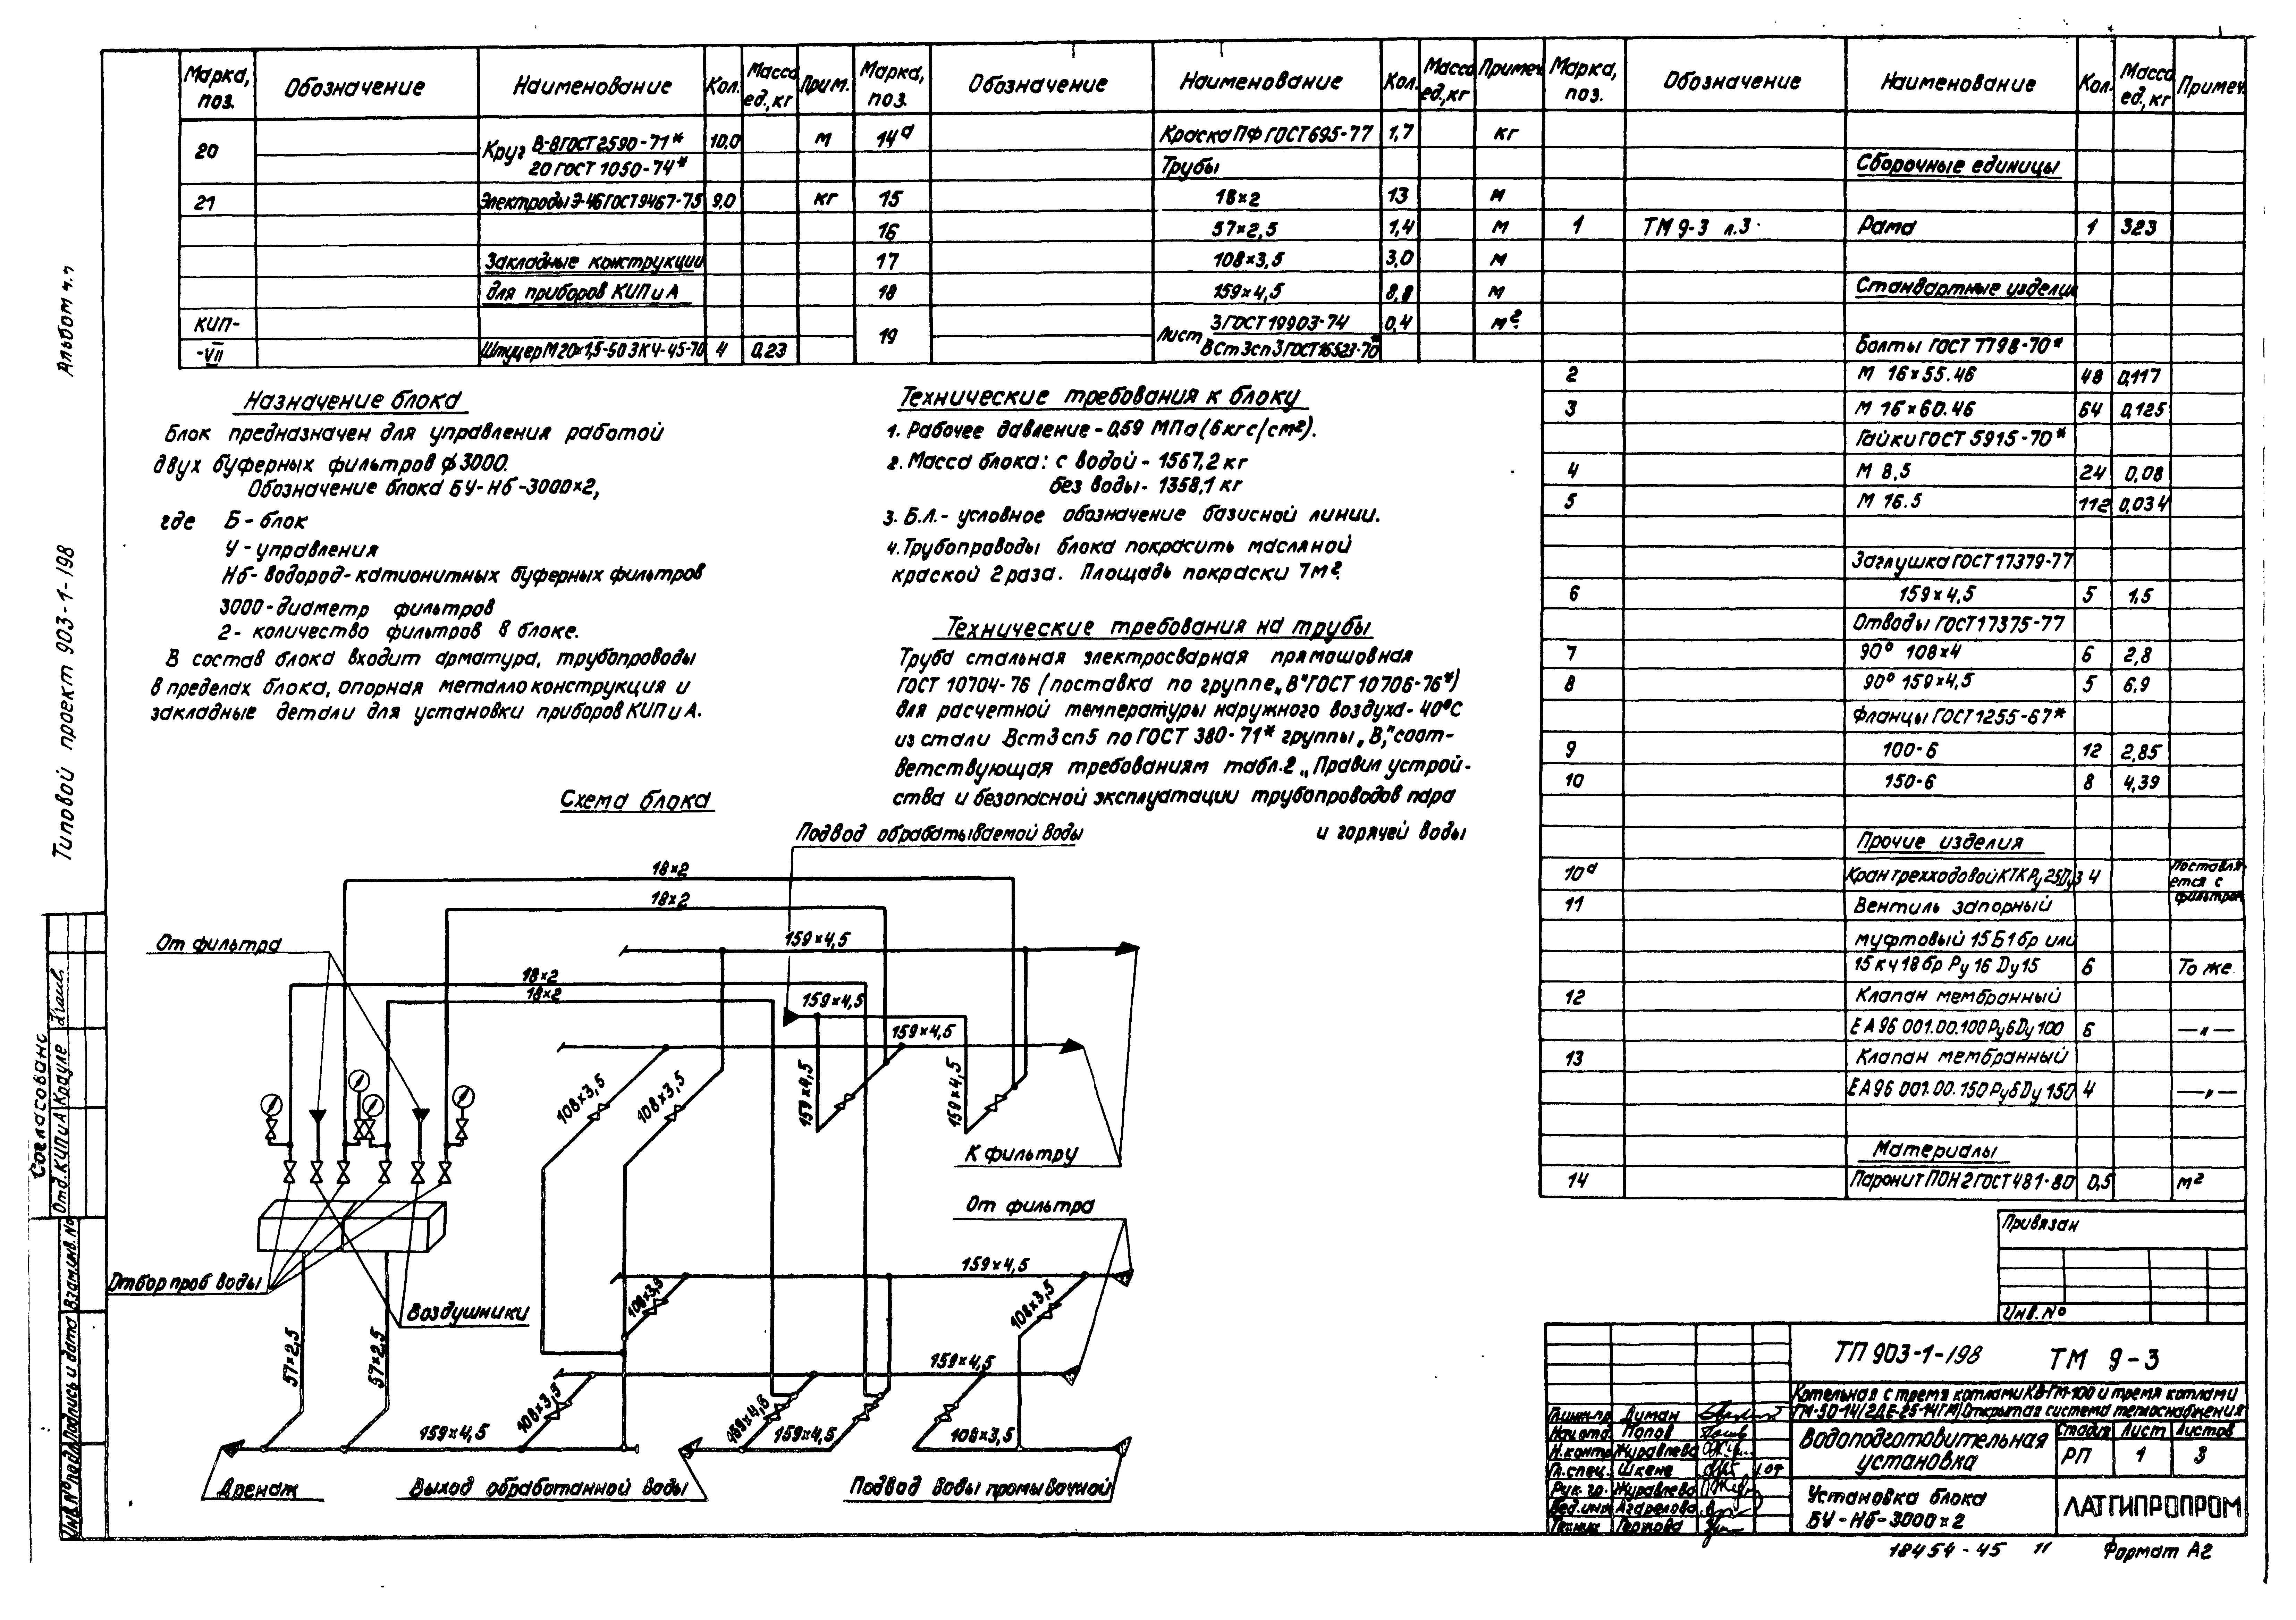 Марка, поз. Обозначение Наименование Кол. Масса ед., кг Прим. Марка, поз. Обозначение Наименование Кол. Масса ед., кг Примеч. Марка, поз. Обозначение Наименование Кол. Масса ед., кг Примеч.
20 Круг В-8 ГОСТ 2590-71* 10,0 м
20 ГОСТ 1050-74*
21 Электроды Э-46 ГОСТ 9467-75 9,0 кг
Закладные конструкции
для приборов КИП и А
КИП-
-VII Штуцер М20×1,5-50 ЗК4-45-70 4 0,23
14а Краска ПФ ГОСТ 695-77 1,7 кг
Трубы
15 18×2 13 м
16 57×2,5 1,4 м
17 108×3,5 3,0 м
18 159×4,5 8,8 м
19 Лист 3 ГОСТ 19903-74 0,4 м²
ВСт3сп3 ГОСТ 16523-70*
Сборочные единицы
1 ТМ 9-3 л.3 Рама 1 323
Стандартные изделия
Болты ГОСТ 7798-70*
2 М 16×55.46 48 0,117
3 М 16×60.46 64 0,125
Гайки ГОСТ 5915-70*
4 М 8,5 24 0,08
5 М 16.5 112 0,034
Заглушка ГОСТ 17379-77
6 159×4,5 5 1,5
Отводы ГОСТ 17375-77
7 90° 108×4 6 2,8
8 90° 159×4,5 5 6,9
Фланцы ГОСТ 1255-67*
9 100-6 12 2,85
10 150-6 8 4,39
Прочие изделия
10а Кран трехходовой КТК Ру 25 Ду3 4 Поставляется с фильтром
11 Вентиль запорный
муфтовый 15Б1бр или
15кч18бр Ру 16 Dу15 6 То же
12 Клапан мембранный
ЕА96 001.00.100 Ру6 Dу 100 6 —„—
13 Клапан мембранный
ЕА96 001.00.150 Ру6 Dу 150 4 —„—
Материалы
14 Паронит ПОН 2 ГОСТ 481-80 0,5 м²
Назначение блока
Блок предназначен для управления работой
двух буферных фильтров ϕ3000.
Обозначение блока БУ-Нб-3000×2,
где Б - блок
У - управления
Нб - водород-катионитных буферных фильтров
3000 - диаметр фильтров
2 - количество фильтров в блоке.
В состав блока входит арматура, трубопроводы
в пределах блока, опорная металлоконструкция и
закладные детали для установки приборов КИП и А.
Технические требования к блоку
1. Рабочее давление - 0,59 МПа (6 кгс/см²).
2. Масса блока: с водой - 1567,2 кг
без воды - 1358,1 кг
3. Б.Л. - условное обозначение базисной линии.
4. Трубопроводы блока покрасить масляной
краской 2 раза. Площадь покраски 7м².
Технические требования на трубы
Труба стальная электросварная прямошовная
ГОСТ 10704-76 (поставка по группе „В" ГОСТ 10706-76*)
для расчетной температуры наружного воздуха - 40°С
из стали Вст3сп5 по ГОСТ 380-71* группы „В," соот-
ветствующая требованиям табл.2 „Правил устрой-
ства и безопасной эксплуатации трубопроводов пара
и горячей воды
Схема блока
Подвод обрабатываемой воды
18×2
18×2
От фильтра
159×4,5
18×2
18×2
159×4,5
159×4,5
108×3,5
108×3,5
159×4,5
159×4,5
К фильтру
От фильтра
Отбор проб воды
Воздушники
57×2,5
57×2,5
108×3,5
159×4,5
108×3,5
159×4,5
108×3,5
159×4,5
159×4,5
159×4,5
108×3,5
Дренаж
Выход обработанной воды
Подвод воды промывочной
Альбом 4.7
Типовой проект 903-1-198
Согласовано
Отд. КИП и А Крауле
Взам. инв. №
Подпись и дата
Инв. № подл.
Привязан
Инв. №
ТП 903-1-198 ТМ 9-3
Котельная с тремя котлами КВ-ГМ-100 и тремя котлами
ГМ-50-14/2ДЕ-25-14ГМ/Открытая система теплоснабжения
Гл.инж.пр. Думан
Нач.отд. Попов
Н.контр. Журавлева
Гл.спец. Шкене
Рук. гр. Журавлева
Вед.инж. Агарелова
Техник
Водоподготовительная
установка
Стадия Лист Листов
РП 1 3
Установка блока
БУ-Нб-3000×2
ЛАТГИПРОПРОМ
18454-45 11 Формат А2